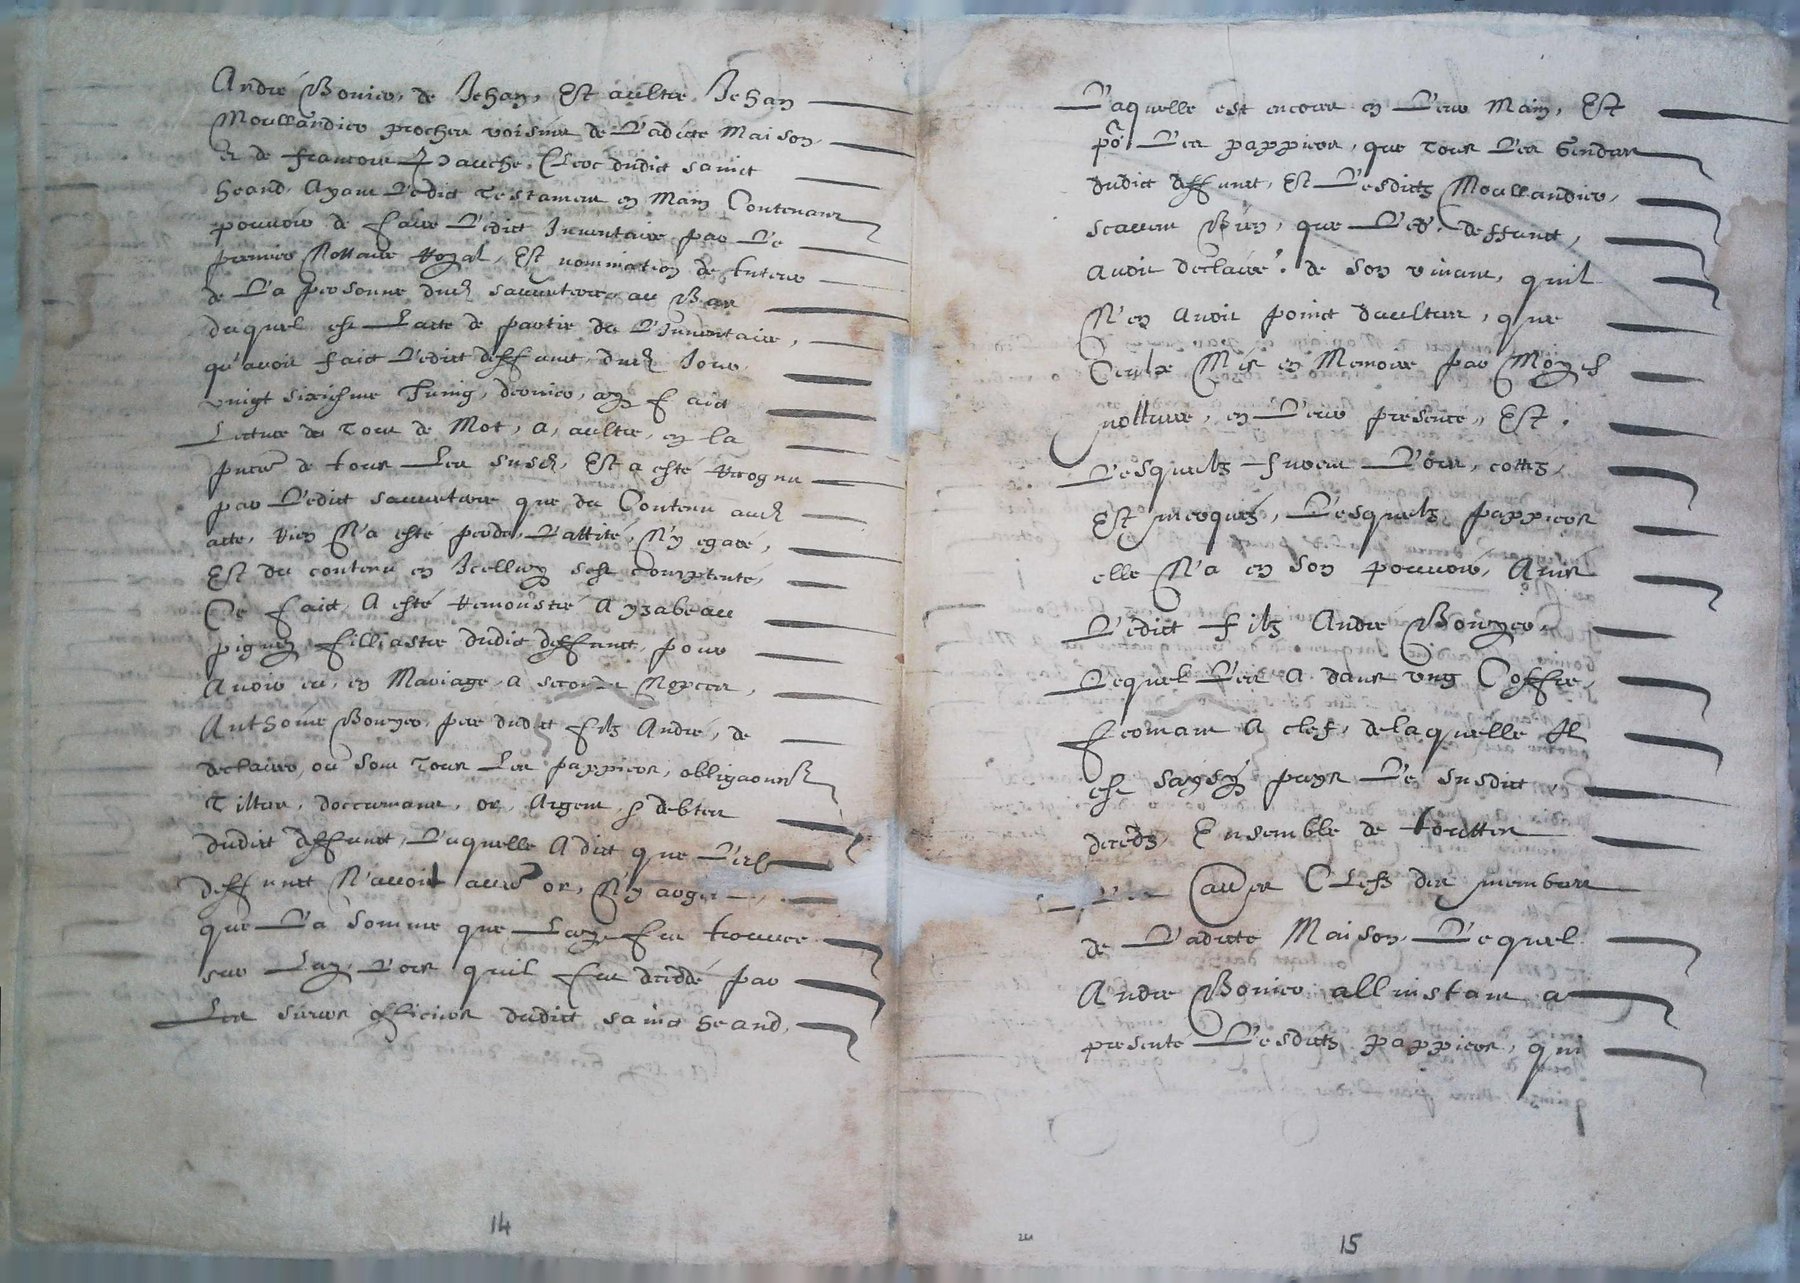 André Bonier, de Jehan, Est aultre Jehan
Moullandier proches voisins de Ladicte Maison
Et de francois Gauche, Clerc dudict sainct
heand, Ayant Ledict Testament en Main Contenant
pouvoir de faire Ledict Inventaire par Le
premier Nottaire Royal, Est nomination de tuteur
de La personne dud sauveterre au Bas
duquel est Lacte de partie de L'Inventaire,
qu'avoit faict Ledict deffunct, dud Jour
vingt sixiesme Juing, dernier, aye faict
Lecture de tout de Mot, a, aultre, en la
pnce de tous Les susd, Est a esté Recognu
par Ledict sauveterre que du Contenu aud
acte, Rien N'a esté perdu, Lattité, N'y egaré,
Est du contenu en Icelluy sest comptenté,
Ce faict, A esté Remonstré A yzabeau
pigney filliastre dudict deffunct, pour
Avoir eu, en Mariage, a seconde Nopces,
Anthoine Bonyer, pere dudict filz André, de
declairer, ou sont tous Les pappiers, obligaons
Tiltres, doccumans, or, Argent, & debtes
dudict deffunct, Laquelle A dict que Led
deffunct N'avoit aucun or, N'y argent
que La somme que Luy fut trouvee
sur Luy, Lors quil fut deceddé par
Les sieurs officiers dudict sainct heand,
14
Laquelle est encores en Leur Main, Est
por Les pappiers, que tous Les Gendres
dudict deffunct, Est Lesdictz Moullandier,
scavent Bien, que Led. deffunct,
Avoit declairé, de son vivant, quil
N'en Avoit poinct daultres, que
Ceulx Mis en Memoire par Moyd
nottaire, en Leur presence, Est.
Lesquelz furent Lors, cottez,
Est incerquez, Lesquelz pappiers
elle N'a en son pouvoir, Ains
Ledict filz André Bonyer,
Lequel Les A dans ung Coffre,
fermant A clef, de laquelle Il
est saysy puys Le susdict
decedz, Ensemble de touttes
Les aultres Clefz des membres
de Ladicte Maison, Lequel
André Bonier, all instant a
presente Lesdictz pappiers, qui
15